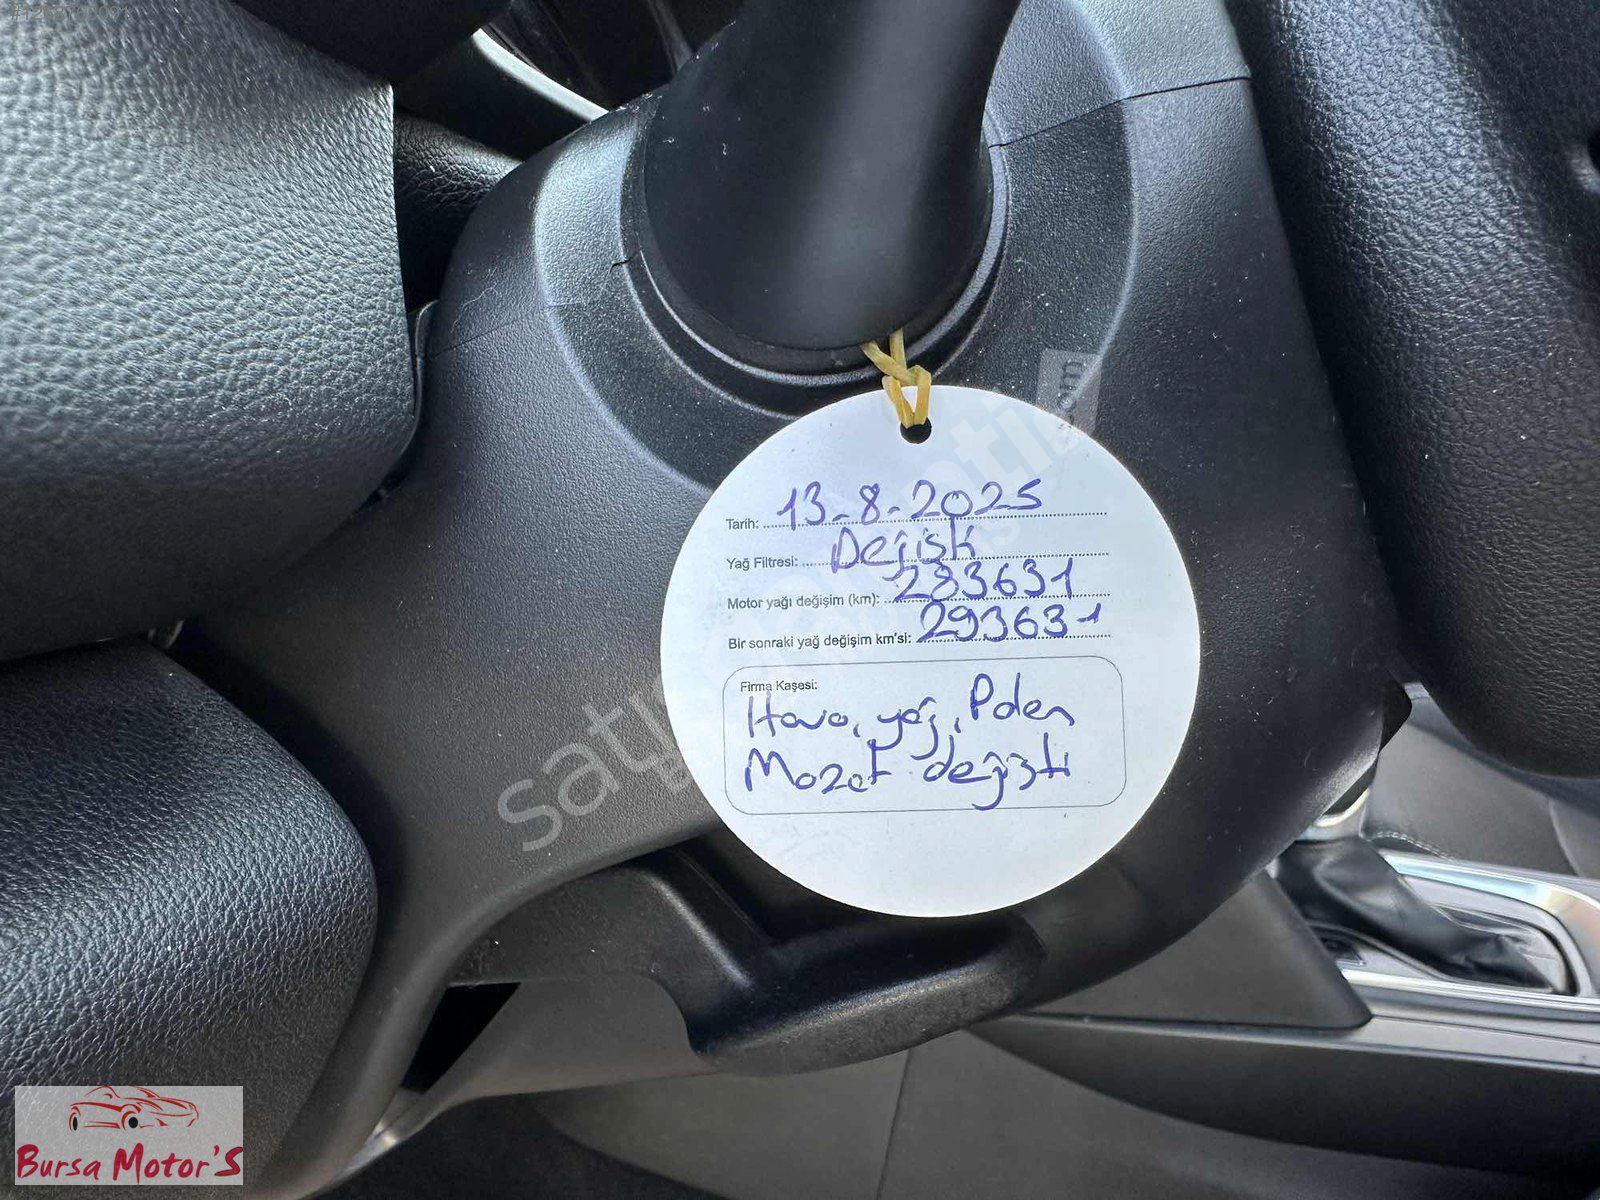 Tarih: 13-8-2025
Yağ Filtresi: Değişti
Motor yağı değişim (km): 283631
Bir sonraki yağ değişim km'si: 293631
Firma Kaşesi:
Hava, yağ, Polen
Mazot değişti
Bursa Motor'S